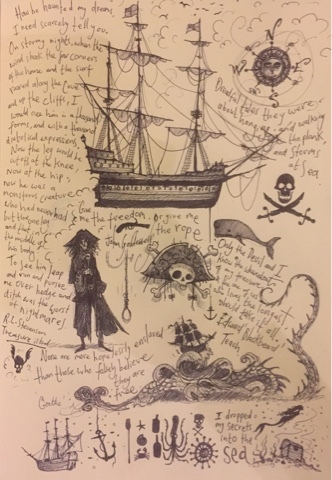 How he haunted my dreams,
I need scarcely tell you.
On stormy nights, when the
wind shook the four corners
of the house and the surf
roared along the cove
and up the cliffs, I
would see him in a thousand
forms, and with a thousand
diabolical expressions.
Now the leg would be
cut off at the knee,
now at the hip;
now he was a
monstrous creature
who had never had
but the one leg
and that in
the middle of
his body.
To see him leap
and run and pursue
me over hedge and
ditch was the worst
of nightmares
R.L. Stevenson
Treasure Island
Dreadful tales they were,
about hanging and walking
the plank
and storms
at sea
Give me the freedom, or give me
the rope
Only the Devil and I
know the
should take it all
Edward
Teach
None are more hopelessly enslaved
than those who falsely believe
they are
free
Goethe
I dropped
my secrets
into the
sea